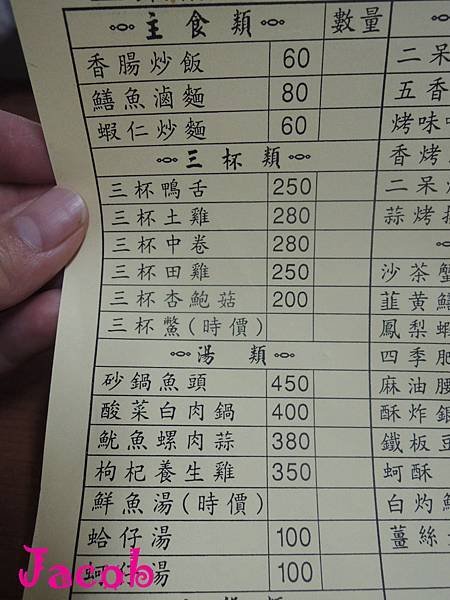 主食類 數量
香腸炒飯 60
鱔魚滷麵 80
蝦仁炒麵 60
三杯類
三杯鴨舌 250
三杯土雞 280
三杯中卷 280
三杯田雞 250
三杯杏鮑菇 200
三杯鱉(時價)
湯類
砂鍋魚頭 450
酸菜白肉鍋 400
魷魚螺肉蒜 380
枸杞養生雞 350
鮮魚湯(時價)
蛤仔湯 100
蚵仔湯 100
二呆
五香
烤味
香烤
二呆
蒜烤
沙茶蟹
韮黃鱔
鳳梨蝦
四季肥
麻油腰
酥炸銀
鐵板豆
蚵酥
白灼魷
薑絲
Jacob